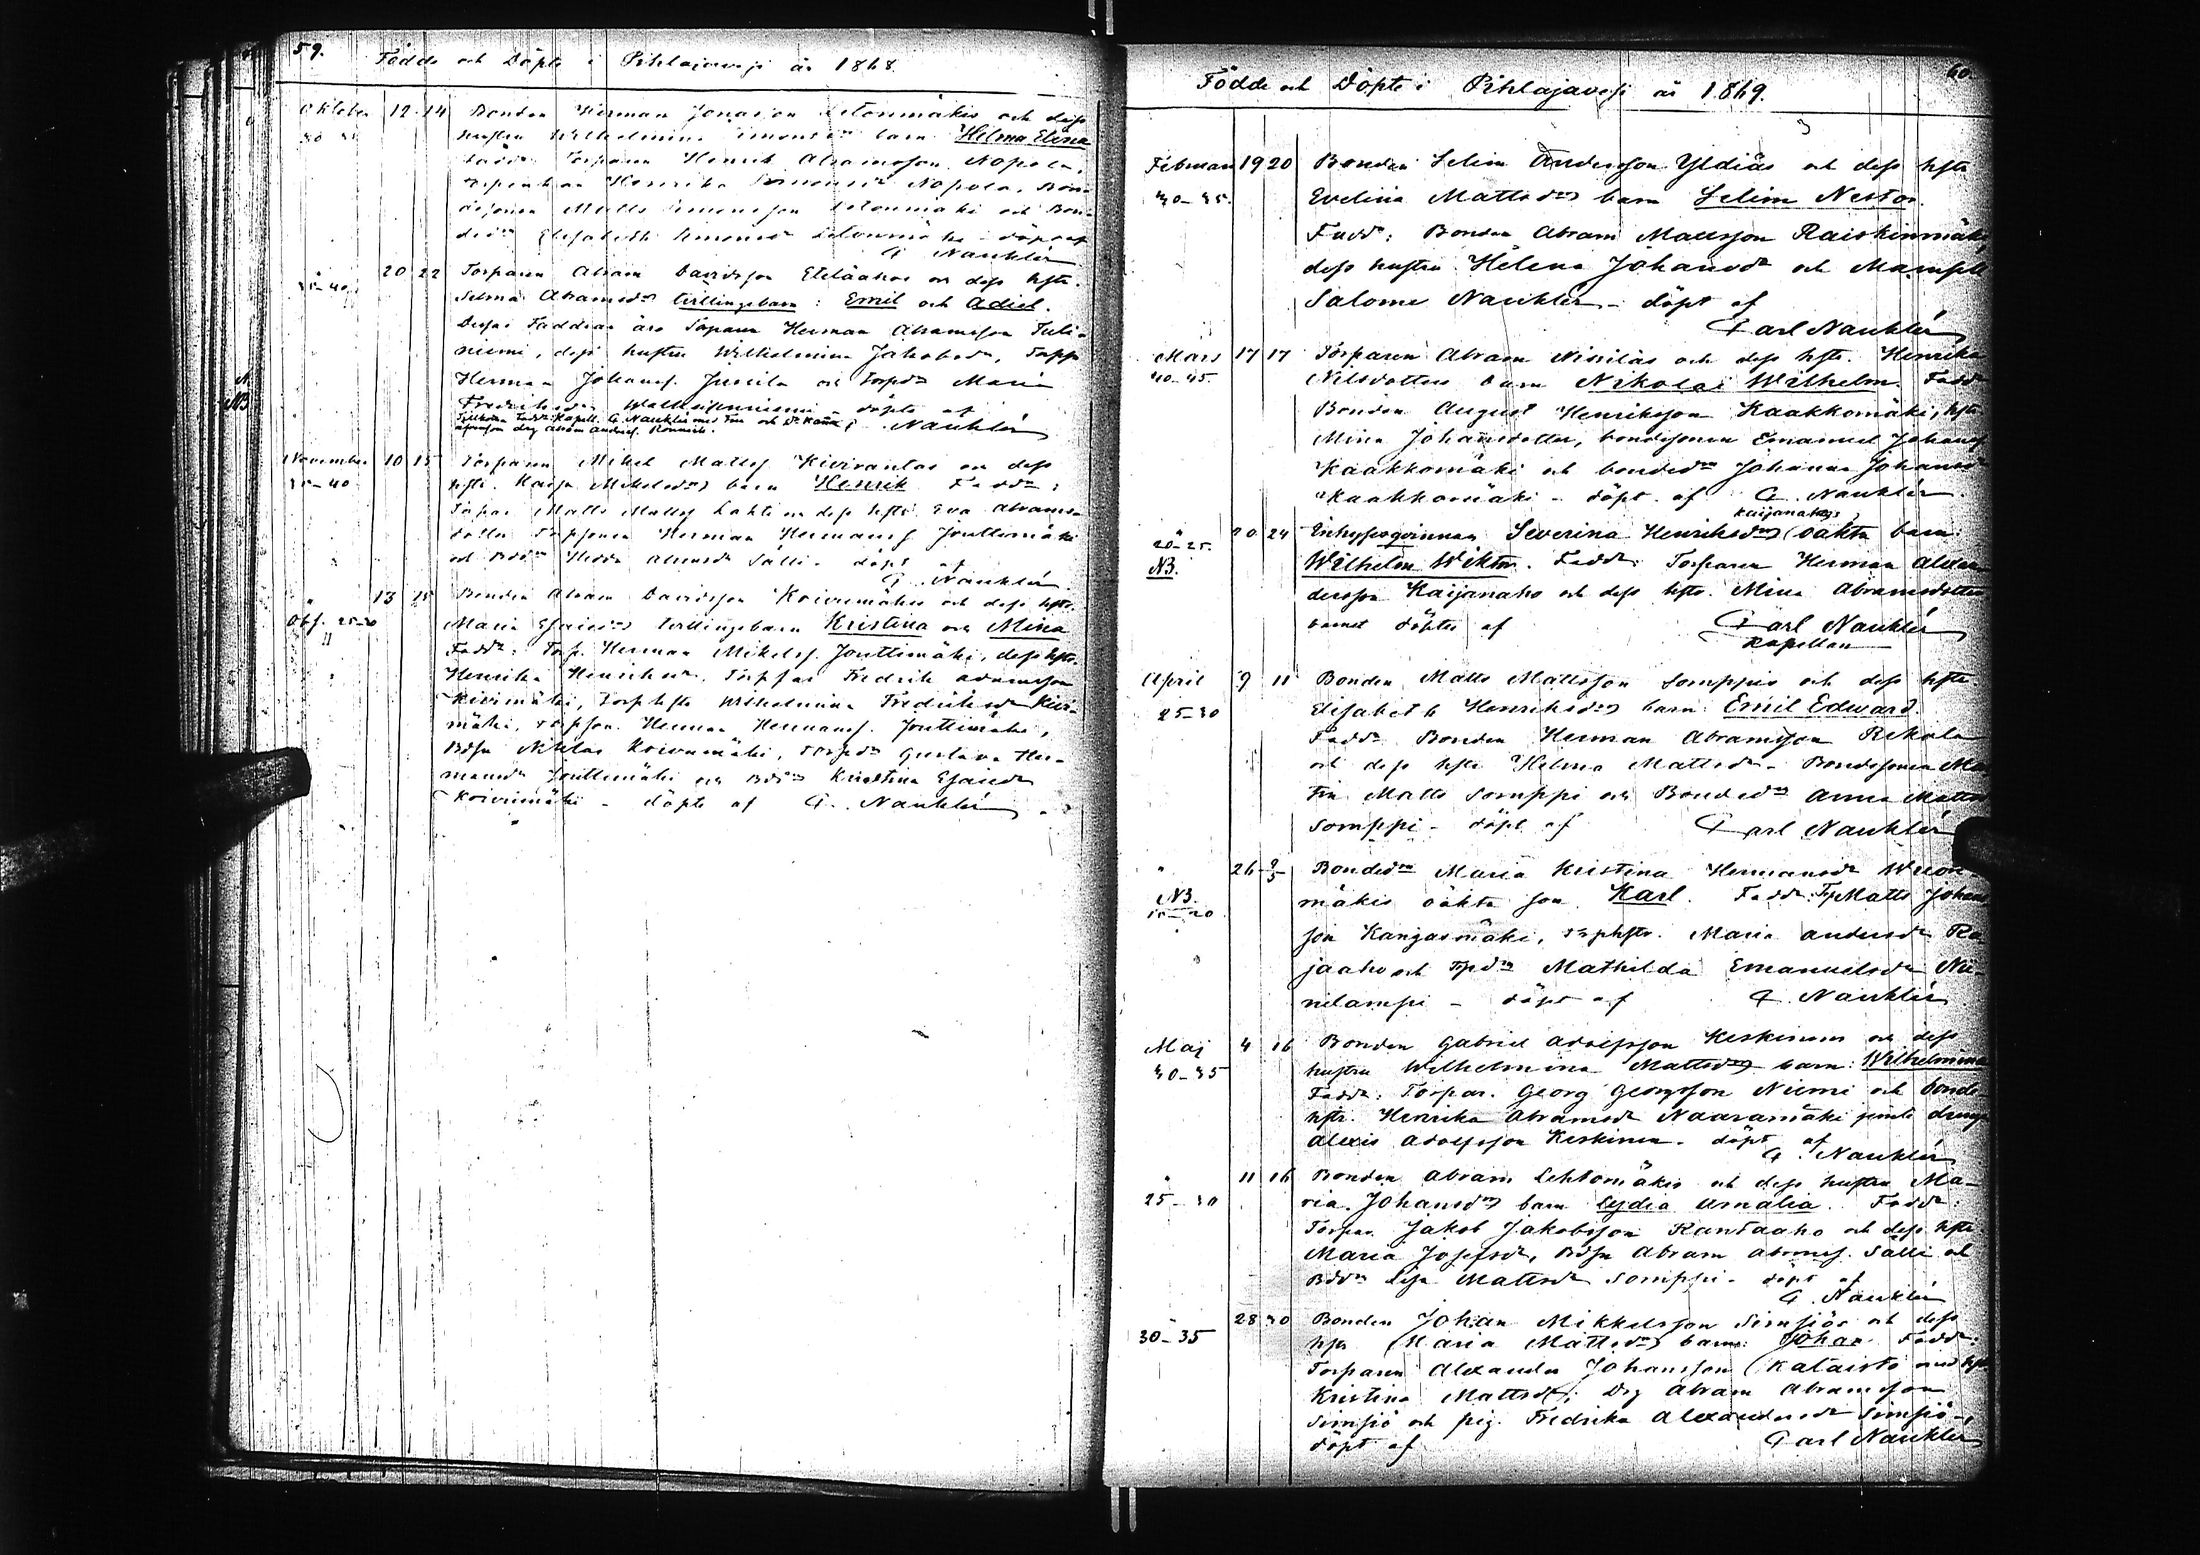 59.
Födde och Döpte i Pihlajavesi år 1868.
Oktober 12 14 Bonden Herman Jonasson och dess
hustru Wilhelmina barn Helma Elina
Torparen Henrik Abramsson Napola,
Henrika Napola, Bon-
desonen Matts Simonsson och Bon-
Elisabeth döpt af
C. Nauklér
" 20 22 Torparen Abram Davidsson Eteläahos och dess hstr.
35-40. Selma Abramsdrs tvillingebarn: Emil och Adiel.
Dessas Faddrar äro Torparen Herman Abramsson
niemi, dess hustru Wilhelmina Jakobsdr, Torpp
Herman Johanss. Jussila och Torpdr Maria
döpte af
C. Nauklér
A.
NB
November 10 15 Torparen Mikel Mattss. Kivirantas och dess
35-40 hstr. Kaisa Mikelsdrs barn Henrik Faddr:
Torpar Matts Mattss. Lahti och dess hstr Eva Abrams-
dotter Torpsonen Herman Hermanss. Jouttimäki
och Bdr Hedda Sälli - döpt af
C. Nauklér
" 13 15 Bonden Abram Davidsson Koivumäkis och dess hstr.
Obs. 25-30 Maria Esaiedrs tvillingebarn Kristina och Mina
Faddr: Torp. Herman Mikelss. Jouttimäki, dess hstr.
Henrika Henriksdr, Torppar Fredrik Adamsson
Kivimäki, Torp hstr Wilhelmina Fredriksdr Kivi-
mäki, Torpson. Herman Hermanss. Jouttimäki,
Bdsn Niklas Koivumäki, Torpdr Gustava Her-
mansdr Jouttimäki och Bddr Kristina Esaiedr
Koivumäki - döpte af C. Nauklér
60.
Födde och Döpte i Pihlajavesi år 1869.
Februari 19 20 Bonden Selim Andersson Yldiäs och dess hstr
30-35. Evelina Mattsdrs barn Selim Nestor.
Faddr: Bonden Abram Mattsson Raiskinmäki
dess hustru Helena Johansdr och Mamsell
Salome Nauklér - döpt af
Carl Nauklér
Mars 17 17 Torparen Abram Nissiläs och dess hstr. Henrika
40-45. Nilsdotters barn Nikolai Wilhelm. Faddr
Bonden August Henriksson Kaakkomäki, hstr
Mina Johansdotter, bondesonen Emanuel Johanss
Kaakkomäki och bondedr Johanna Johansdr
Kaakkomäki - döpt af C. Nauklér.
Kaijanahos
" 20 24 Inhysesqvinnan Severina Henriksdrs oäkta barn:
20-25. Wilhelm Wiktor. Faddr: Torparen Herman Alexan-
NB. dersson Kaijanaho och dess hstr. Mina Abramsdotter
barnet döptes af Carl Nauklér
Kapellan
April 9 11 Bonden Matts Mattsson Somppis och dess hstr
25-30 Elisabeth Henriksdrs barn Emil Edward.
Faddr Bonden Herman Abramsson Rekola
och dess hstr Helena Mattsdr - Bondesonen Mar-
tin Matts Somppi och Bondedr Anna Mattsdr
Somppi - döpt af Carl Nauklér
" 26 2/5 Bondedr Maria Kristina Hermansdr Wuori-
NB. mäkis oäkta son Karl. Faddr: Tp Matts Johans-
15-20 son Kangasmäki, Torphstr. Maria Andersdr Ra-
jaaho och Tpdr Mathilda Emanuelsdr Nii-
nilampi - döpt af C. Nauklér
Maj 4 16 Bonden Gabriel Adolfsson Keskinens och dess
30-35 hustru Wilhelmina Mattsdrs barn: Wilhelmina
Faddr: Torpar. Georg Georgsson Niemi och bonde
hstr. Henrika Abramsdr Naaramäki jemte dreng
Alexis Adolfsson Keskinen - döpt af
C. Nauklér
" 11 16 Bonden Abram Lehtomäkis och dess hustru Ma-
25-30 ria Johansdrs barn Lydia Amalia. Faddr:
Torpar. Jakob Jakobsson Rantaaho och dess hstr
Maria Josefsdr, Bdsn Abram Abramss. Sälli och
Bddr Lisa Mattsdr Somppi - döpt af
C. Nauklér
" 28 30 Bonden Johan Mikkelsson Simsiös och dess
30-35 hstr Maria Mattsdrs barn: Johan Faddr:
Torparen Alexander Johansson Kataisto med hstr
Kristina Mattsdr; Drg Abram Abramsson
Simsiö och pig. Fredrika Alexandersdr Simsiö -
döpt af Carl Nauklér